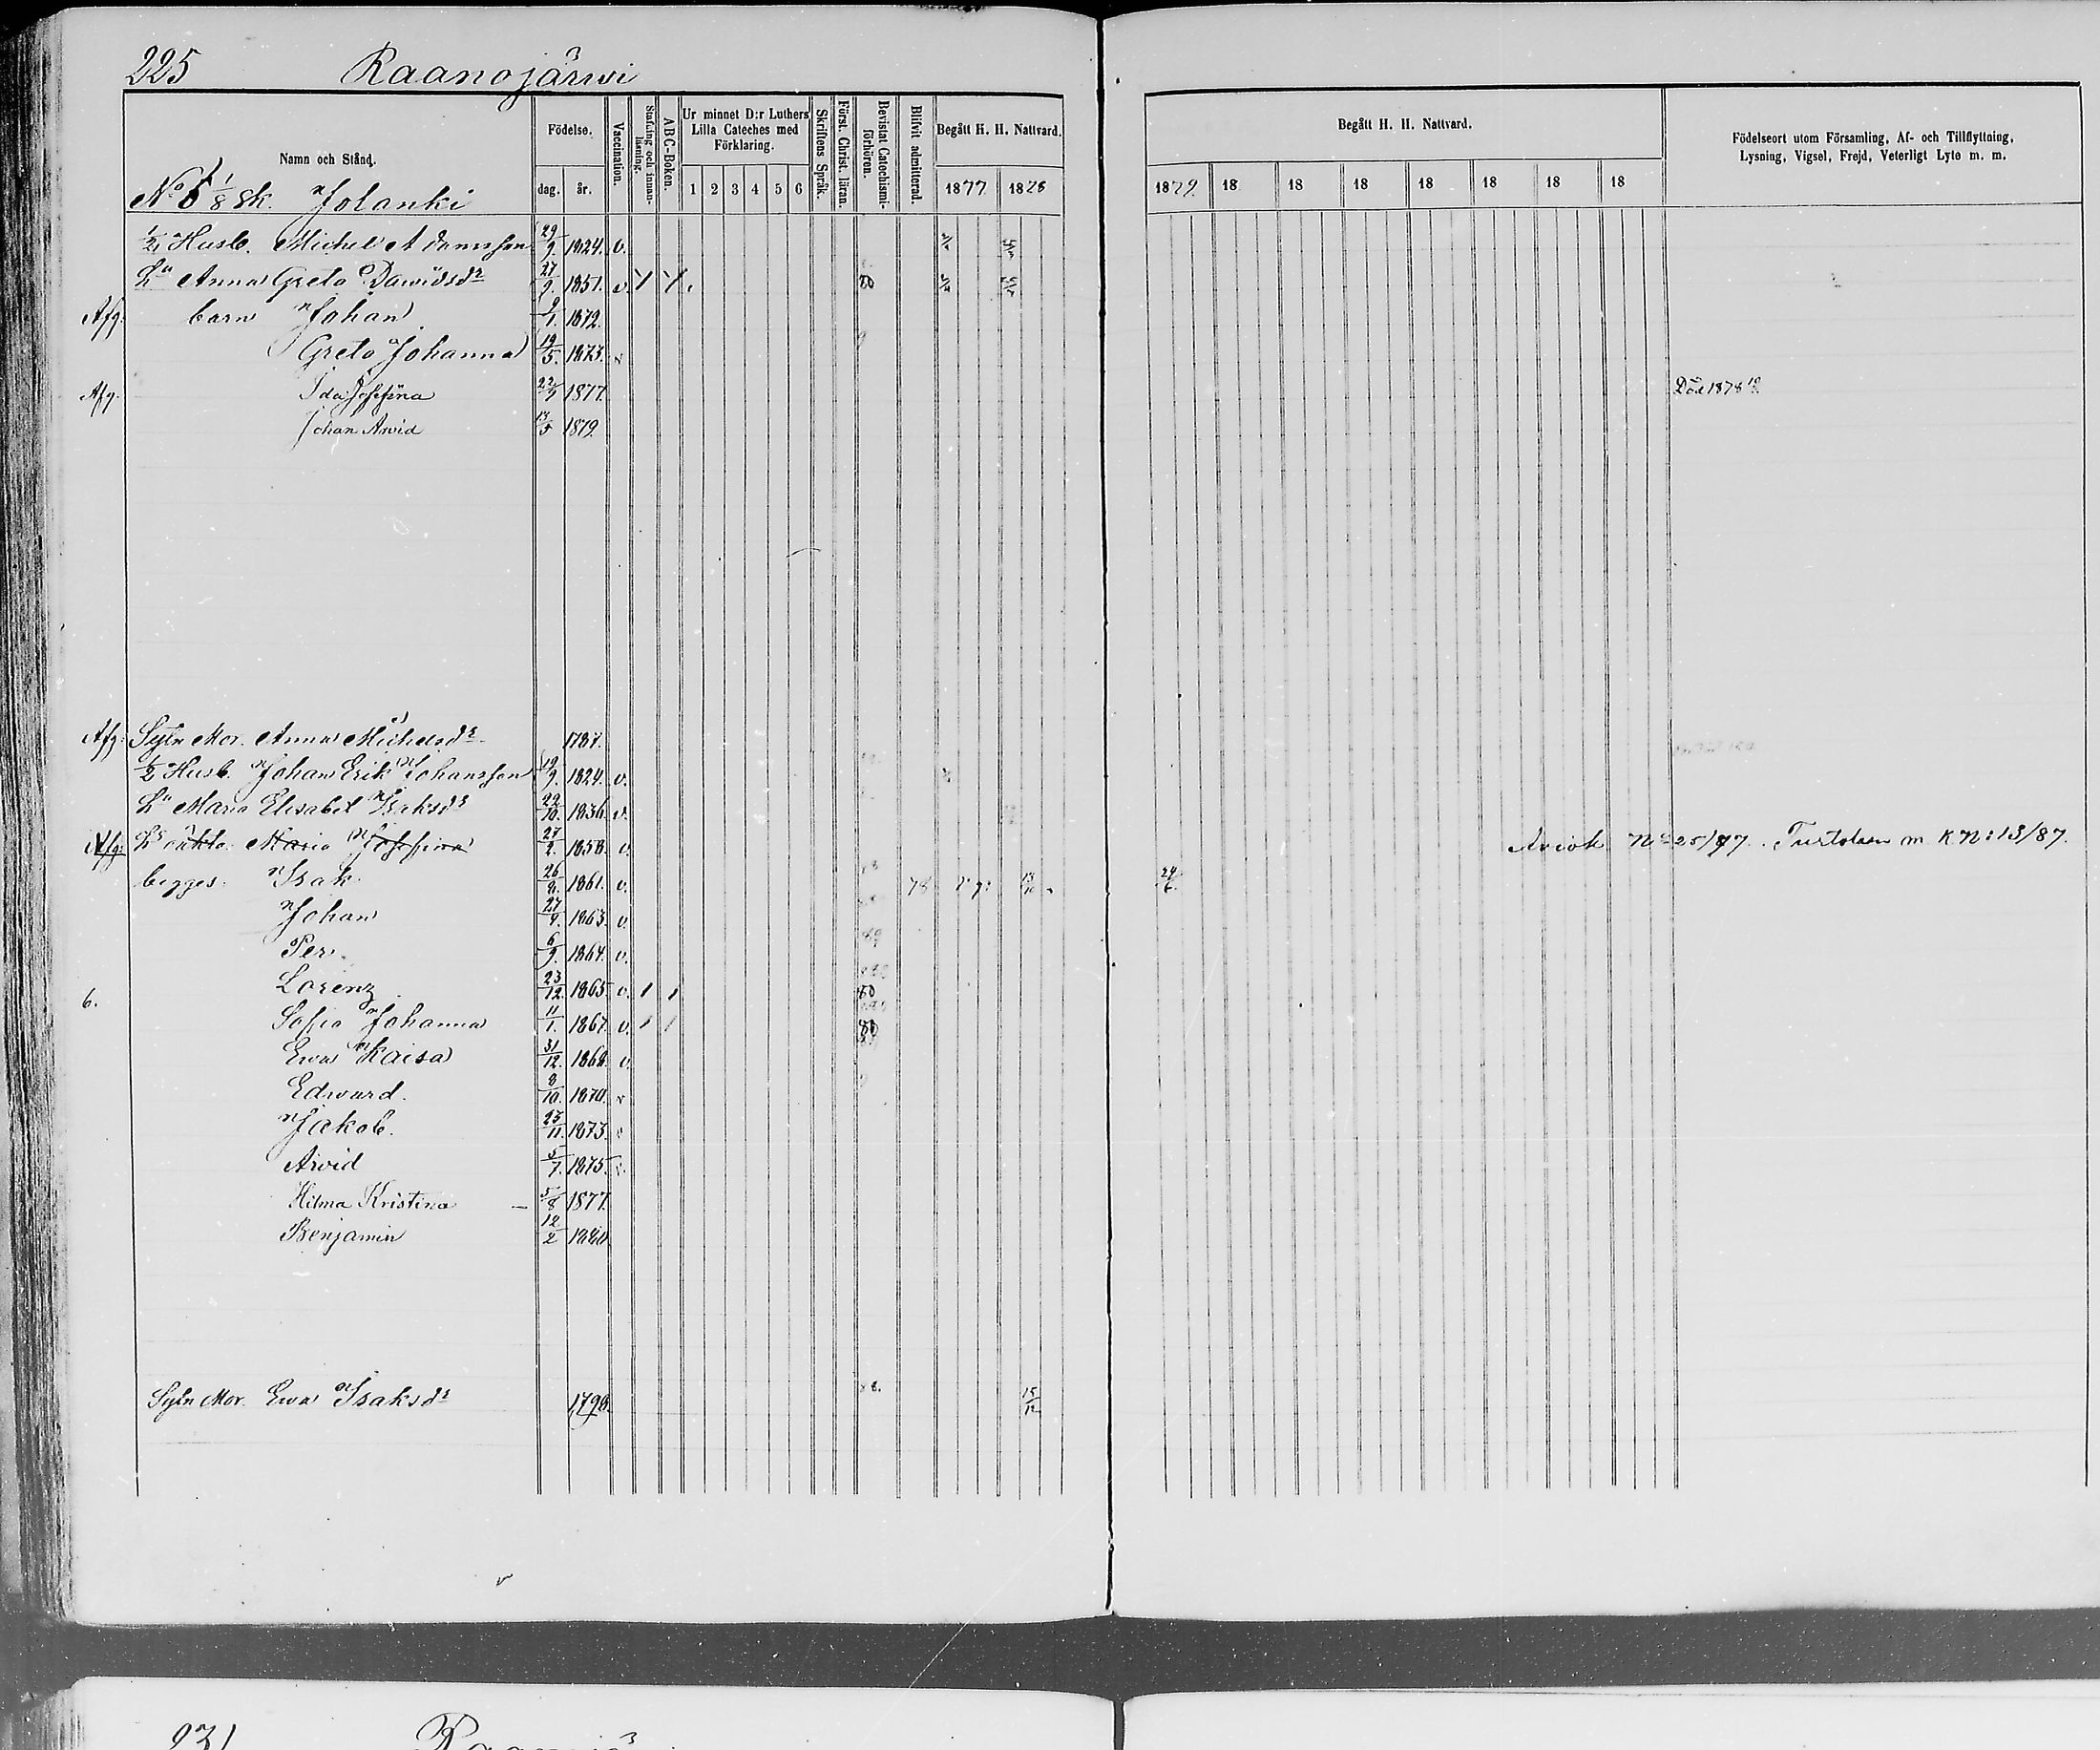 225 Raanojärwi
Namn och Stånd.
Födelse.
dag. år.
Vaccination.
Stafning och innanläsning.
ABC-Boken.
Ur minnet D:r Luthers Lilla Cateches med Förklaring.
1 2 3 4 5 6
Skriftens Språk.
Först. Christ. läran.
Bevistat Catechismiförhören.
Blifvit admitterad.
Begått H. H. Nattvard.
1877. 1878
Begått H. H. Nattvard.
1879. 18 18 18 18 18 18 18
Födelseort utom Församling, Af- och Tillflyttning,
Lysning, Vigsel, Frejd, Veterligt Lyte m. m.
No 1/8 Sk. Jolanki
1/2 Husb. Michel Adamsson 29/9. 1824. v.
Hu Anna Greta Dawidsdr 27/9. 1851. v. 80
Afg. barn Johan 9/1. 1872.
Greta Johanna 19/5. 1873.
Afg. Ida Josefina 1877. Död 1878
Johan Arvid 13/5 1879.
Afg. Sytn Mor. Anna Michelsdr 1787.
1/2 Husb. Johan Erik Johansson 19/9. 1824. v.
Hu Maria Elisabet Isaksdr 22/10. 1836. v.
Afg. Hs oäkta. Maria Josefina 27/2. 1858. v. Aviok No 25/77. Turtolaan m K N:13/87.
begges. Isak 26/8. 1861. v. 78 24/6.
Johan 27/9. 1863. v.
Per. 6/9. 1864. v.
6. Lorenz 23/12. 1865 v. 1 1 80
Sofia Johanna 11/1. 1867. v. 1 1 80
Ewa Kaisa 31/12. 1868. v.
Edward. 8/10. 1870.
Jakob. 23/11. 1873.
Arvid 5/7. 1875.
Hilma Kristina – 5/8 1877.
Benjamin 12/2 1880
Sytn Mor. Ewa Isaksdr 1798. 15/12
231 Raanojä